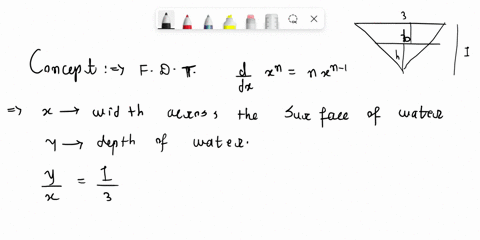 3
b
h
I
Concept :=> F. D. T. d/dx xⁿ = n xⁿ⁻¹
=> x → width across the surface of water
y → depth of water.
y/x = 1/3